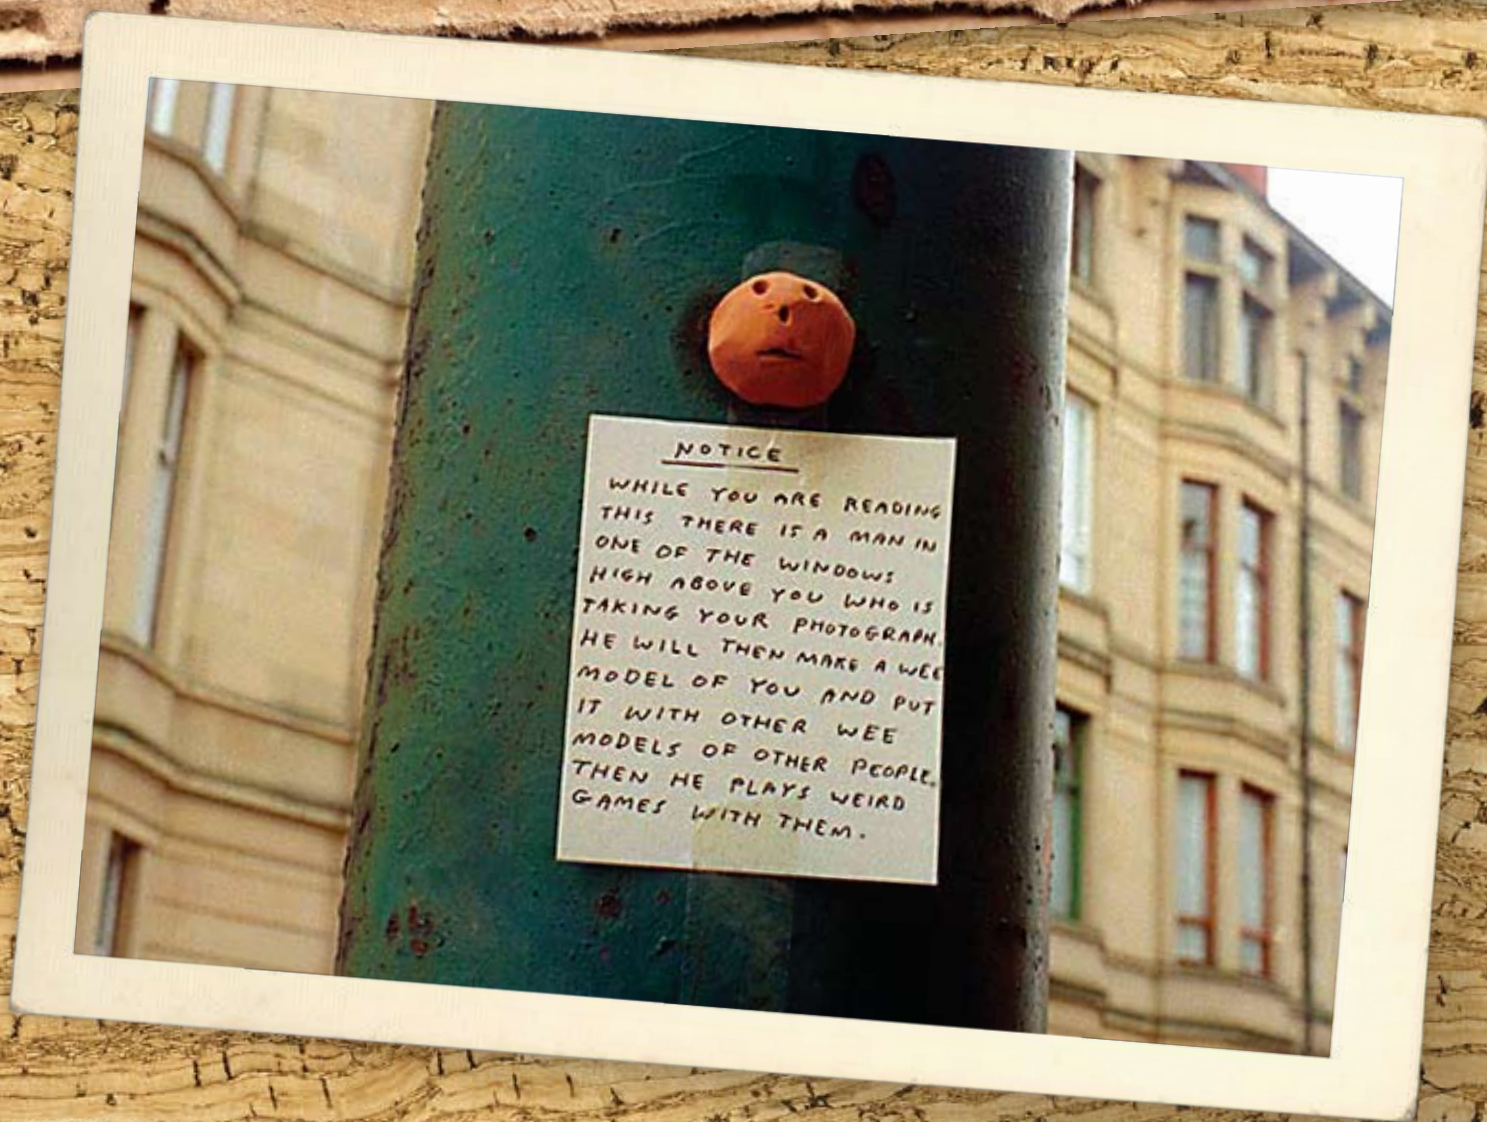 NOTICE
WHILE YOU ARE READING
THIS THERE IS A MAN IN
ONE OF THE WINDOWS
HIGH ABOVE YOU WHO IS
TAKING YOUR PHOTOGRAPH.
HE WILL THEN MAKE A WEE
MODEL OF YOU AND PUT
IT WITH OTHER WEE
MODELS OF OTHER PEOPLE.
THEN HE PLAYS WEIRD
GAMES WITH THEM.